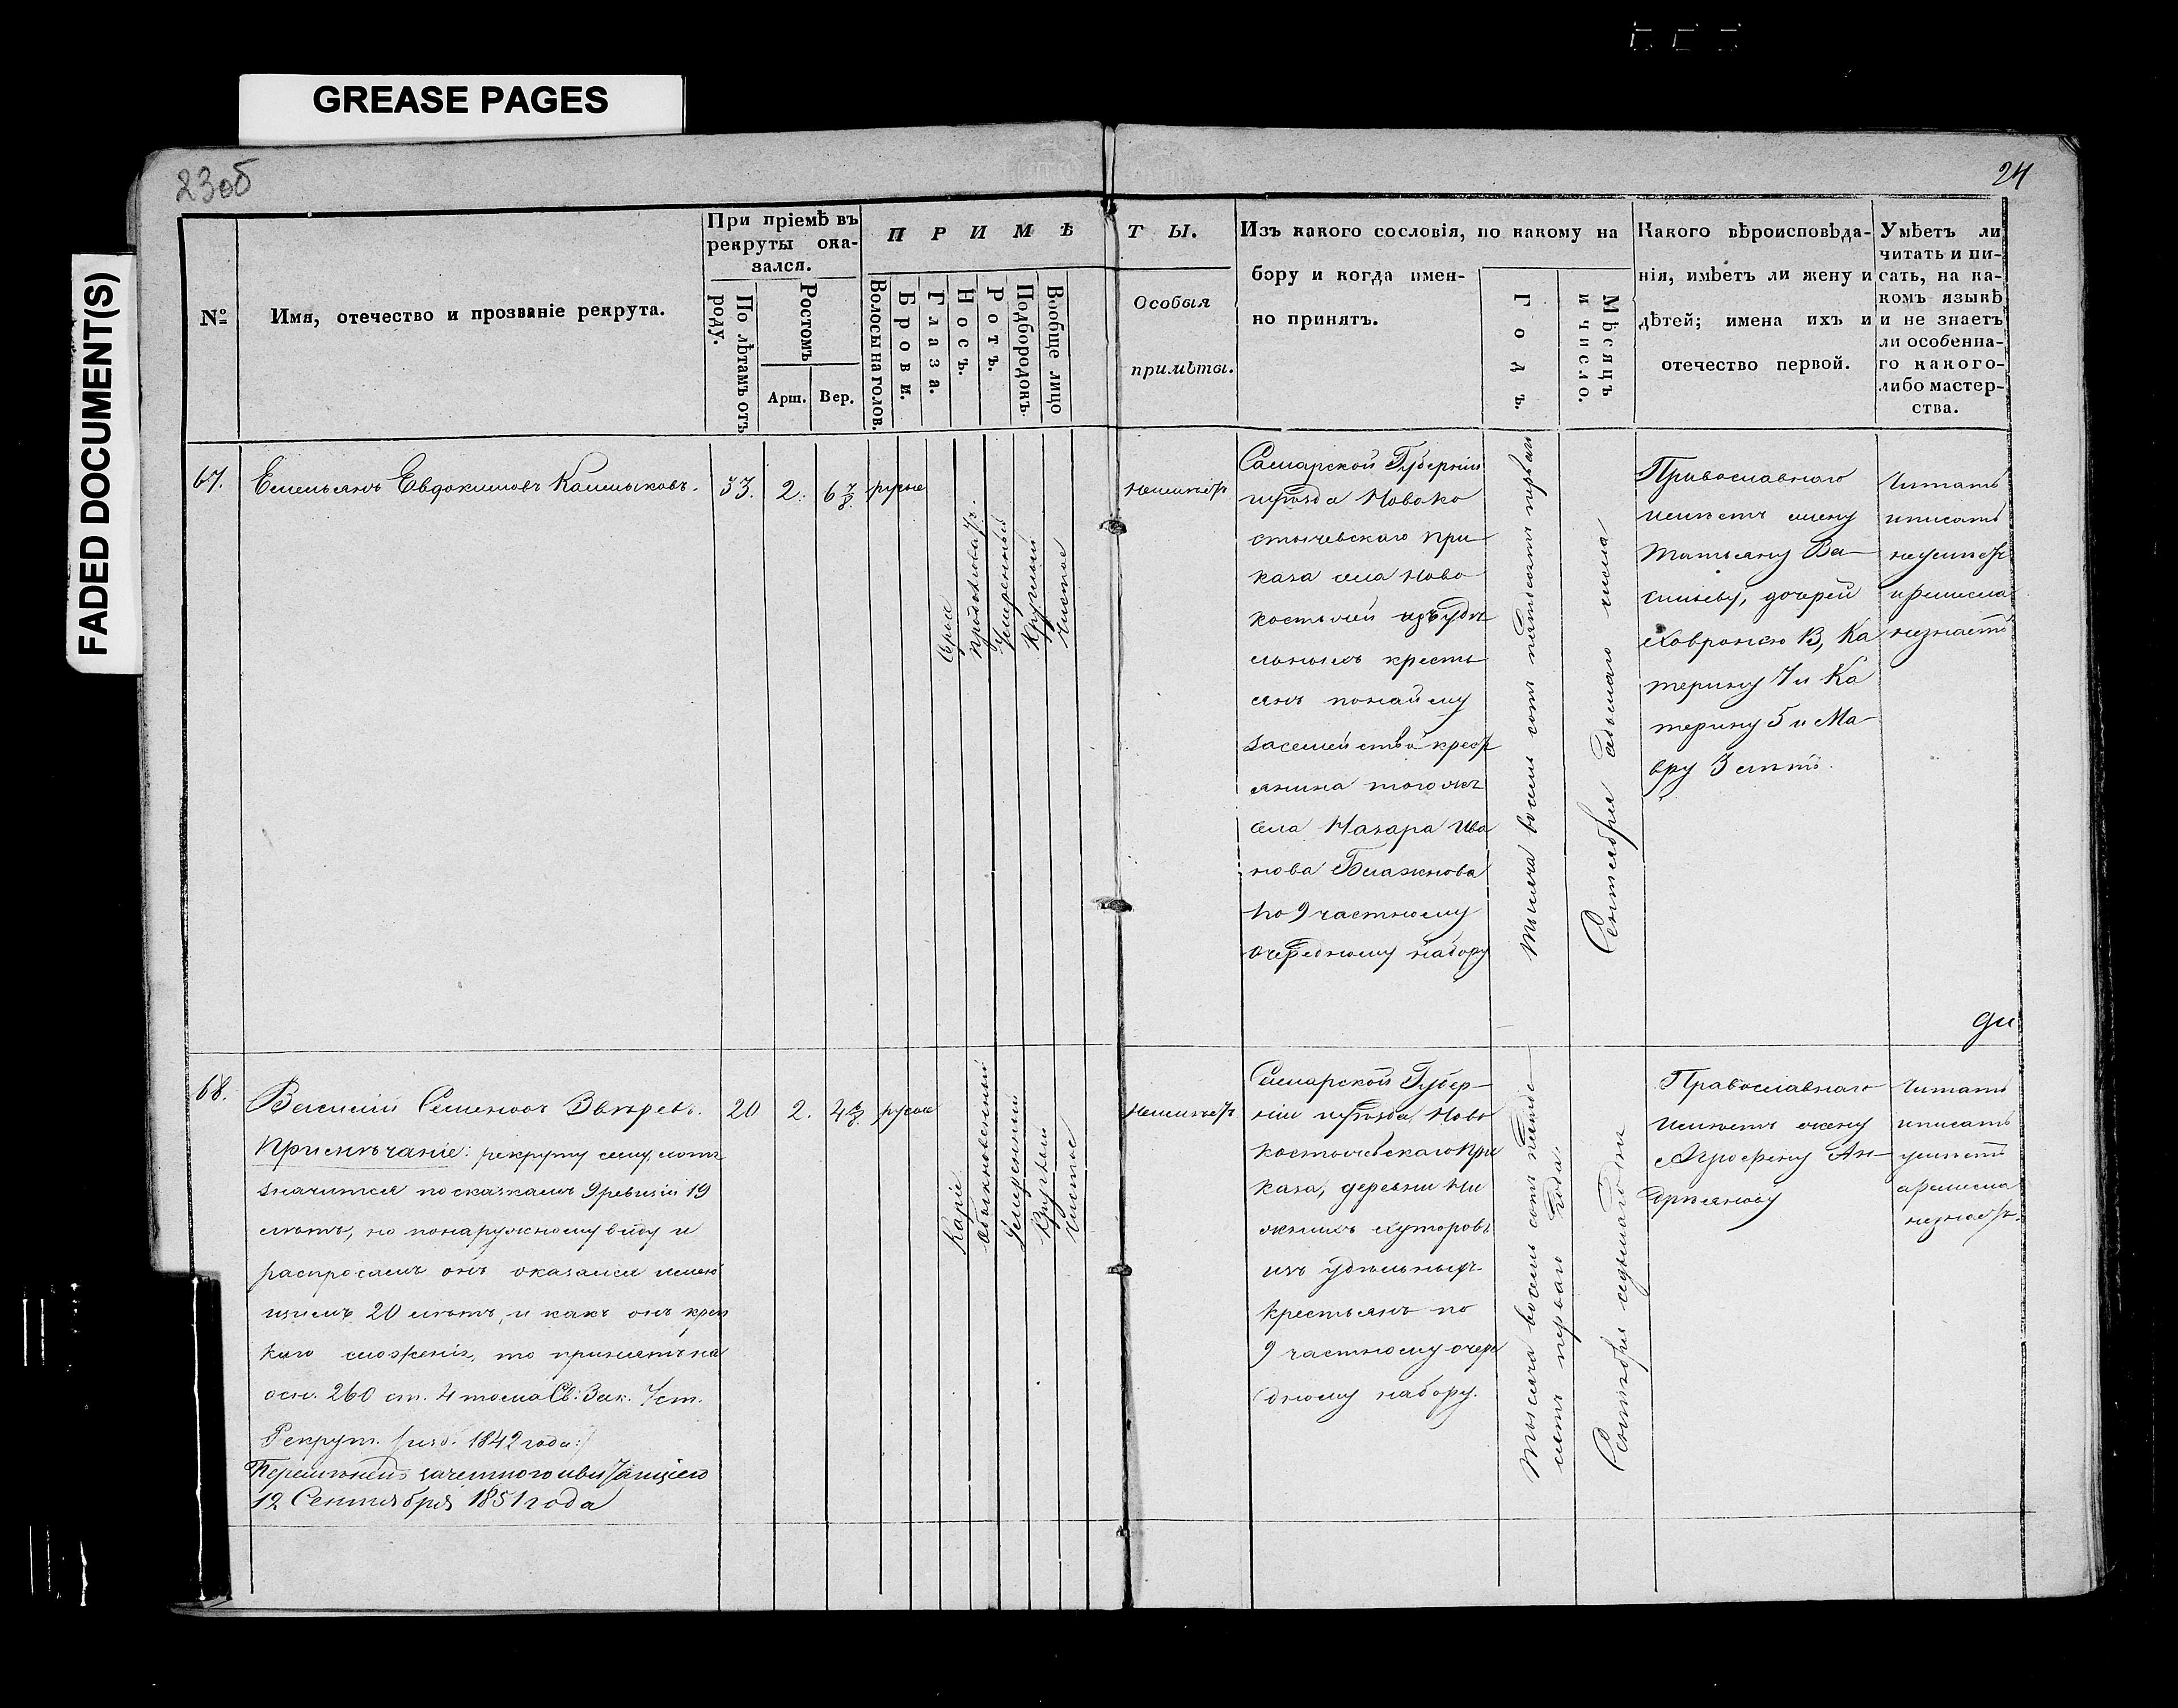 GREASE PAGES
FADED DOCUMENT(S)
23об
24
№
Имя, отечество и прозваніе рекрута.
При пріемѣ въ
рекруты ока-
зался.
По лѣтамъ отъ
роду.
Ростомъ
Арш.
Вер.
ПРИМѢ
ТЫ.
Волосы на голов.
Брови.
Глаза.
Носъ.
Ротъ.
Подбородокъ.
Вообще лицо
Особыя
примѣты.
Изъ какого сословія, по какому на
бору и когда имен-
но принятъ.
Годъ.
Мѣсяцъ
и число.
Какого вѣроисповѣда-
нія, имѣетъ ли жену и
дѣтей; имена ихъ и
отечество первой.
Умѣетъ ли
читать и пи-
сать, на ка-
комъ языкѣ
и не знаетъ
ли особенна-
го какого-
либо мастер-
ства.
67.
Емельянъ Евдокимовъ Калмыковъ.
33.
2.
6 7/8.
русые
сѣрые
продолговатъ.
Умеренный
Круглый
Чистое
Неимѣетъ
Самарской Губерніи
и уѣзда Ново ко
стычевскаго при
каза села Ново
костычей изъ удѣ
льныхъ кресть
янъ по найму
за семейство крест
янина того же
села Назара Ива
нова Блажнова
по 9 частному
очередному набору
Тысяча восемь сотъ пятьдесятъ первый
Сентября седьмаго числа
Православнаго
имѣетъ жену
Татьяну Ва-
сильеву, дочерей
Ховронью 13, Ка
терину 7 и Ка
терину 5 и Ма-
вру 3 лѣтъ.
Читать
и писать
не умѣетъ
и ремесла
не знаетъ
68.
Василій Семеновъ Звѣревъ.
Примѣчаніе: рекруту сему, хотя
значится по сказкамъ 9 ревизіи 19
лѣтъ, но по наружному виду и
распросамъ онъ оказался имею
щимъ 20 лѣтъ, и какъ онъ креп
каго сложенія, то принятъ на
осн. 260 ст. 4 тома Св: Зак. Уст.
Рекрут. /изд. 1842 года:/
12 Сентября 1851 года
20
2.
4 6/8.
русые
Каріе
Обыкновенный
Умеренный
Круглый
Чистое
Неимѣетъ
Самарской Губер-
ніи и уѣзда, Ново
костычевскаго при
каза, деревни Ни
жнихъ хуторовъ
изъ удѣльныхъ
крестьянъ по
9 частному очере
дному набору.
Тысяча восемь сотъ пятьде-
сятъ первый года.
Сентября седьмаго дня
Православнаго
имѣетъ жену
Агрофену Ан-
дрѣянову
Читать
и писать
умѣетъ
а ремесла
незнаетъ.